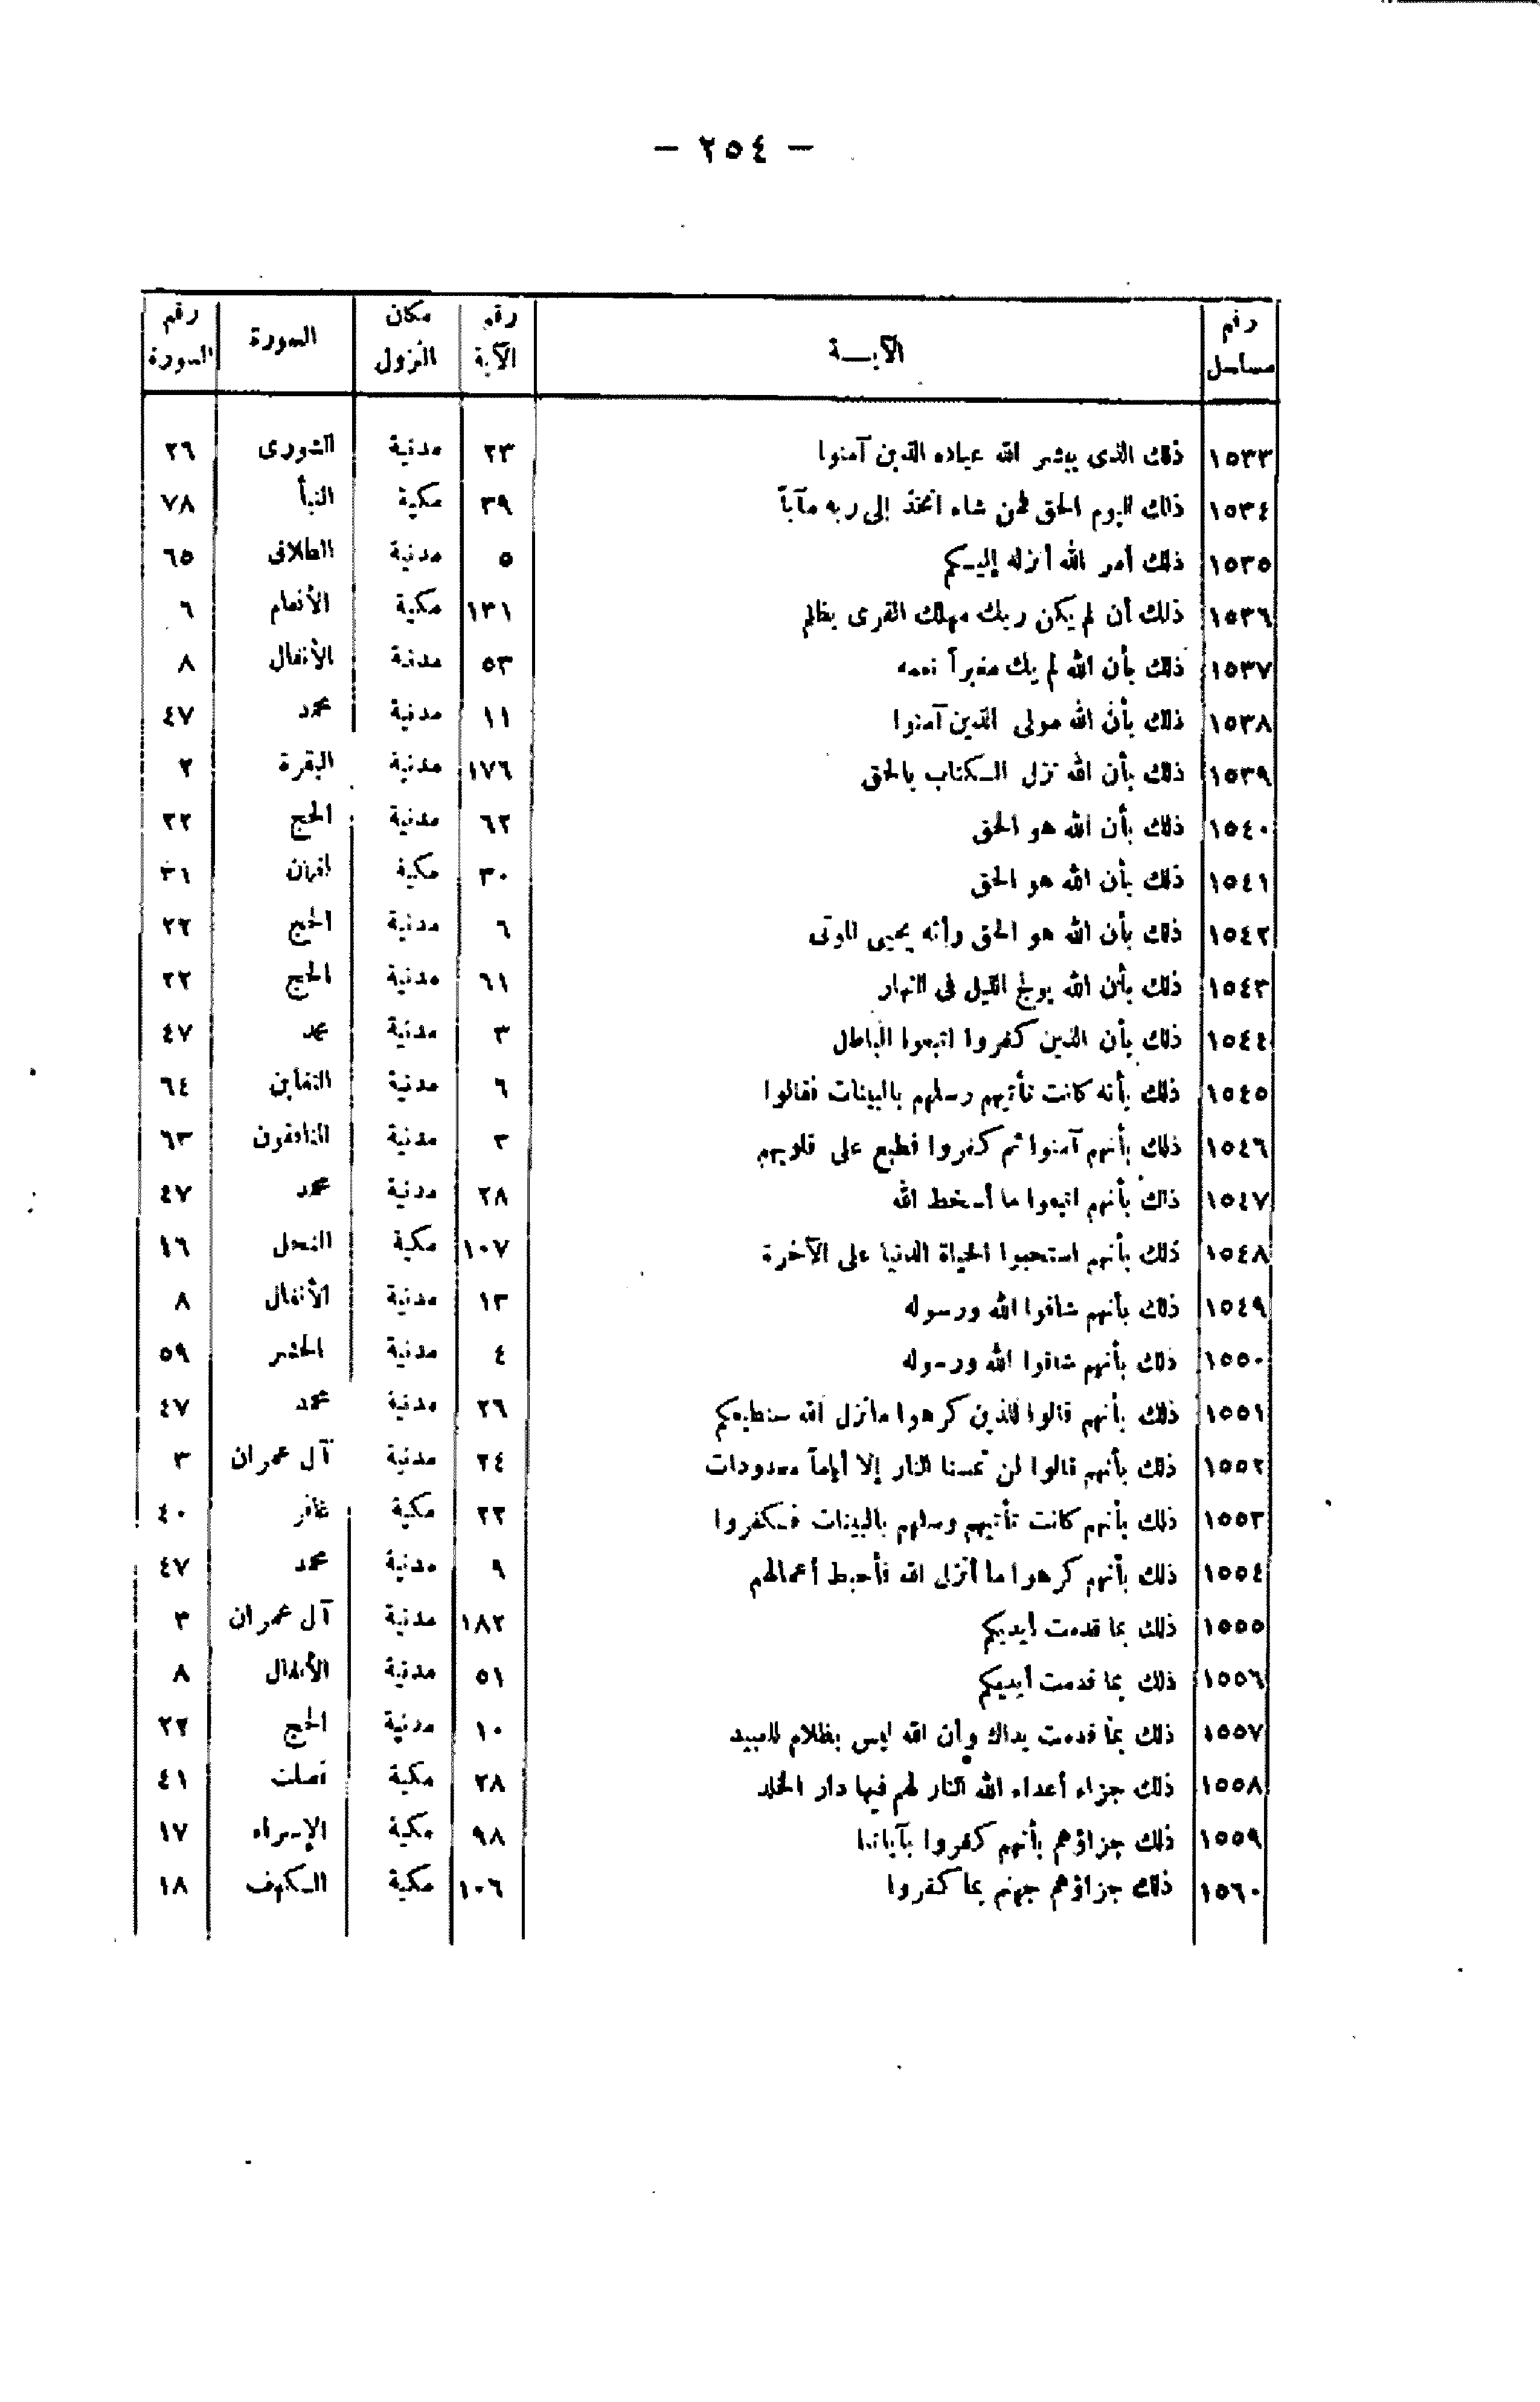 — ٢٥٤ —
رقم مسلسل | الآيـــة | رقم الآية | مكان النزول | السورة | رقم السورة
١٥٣٣ | ذلك الذى يبشر الله عباده الذين آمنوا | ٢٣ | مدنية | الشورى | ٢٦
١٥٣٤ | ذلك اليوم الحق فمن شاء اتخذ إلى ربه مآباً | ٣٩ | مكية | النبأ | ٧٨
١٥٣٥ | ذلك أمر الله أنزله إليـكم | ٥ | مدنية | الطلاق | ٦٥
١٥٣٦ | ذلك أن لم يكن ربك مهلك القرى بظلم | ١٣١ | مكية | الأنعام | ٦
١٥٣٧ | ذلك بأن الله لم يك مغيراً نعمه | ٥٣ | مدنية | الأنفال | ٨
١٥٣٨ | ذلك بأن الله مولى الذين آمنوا | ١١ | مدنية | محمد | ٤٧
١٥٣٩ | ذلك بأن الله نزل الـكتاب بالحق | ١٧٦ | مدنية | البقرة | ٢
١٥٤٠ | ذلك بأن الله هو الحق | ٦٢ | مدنية | الحج | ٢٢
١٥٤١ | ذلك بأن الله هو الحق | ٣٠ | مكية | لقمان | ٣١
١٥٤٢ | ذلك بأن الله هو الحق وأنه يحيى الموتى | ٦ | مدنية | الحج | ٢٢
١٥٤٣ | ذلك بأن الله يولج الليل فى النهار | ٦١ | مدنية | الحج | ٢٢
١٥٤٤ | ذلك بأن الذين كفروا اتبعوا الباطل | ٣ | مدنية | محمد | ٤٧
١٥٤٥ | ذلك بأنه كانت تأتيهم رسلهم بالبينات فقالوا | ٦ | مدنية | التغابن | ٦٤
١٥٤٦ | ذلك بأنهم آمنوا ثم كفروا فطبع على قلوبهم | ٣ | مدنية | المنافقون | ٦٣
١٥٤٧ | ذلك بأنهم اتبعوا ما أسخط الله | ٢٨ | مدنية | محمد | ٤٧
١٥٤٨ | ذلك بأنهم استحبوا الحياة الدنيا على الآخرة | ١٠٧ | مكية | النحل | ١٦
١٥٤٩ | ذلك بأنهم شاقوا الله ورسوله | ١٣ | مدنية | الأنفال | ٨
١٥٥٠ | ذلك بأنهم شاقوا الله ورسوله | ٤ | مدنية | الحشر | ٥٩
١٥٥١ | ذلك بأنهم قالوا للذين كرهوا مانزل الله سنطيعكم | ٢٦ | مدنية | محمد | ٤٧
١٥٥٢ | ذلك بأنهم قالوا لن تمسنا النار إلا أياماً معدودات | ٢٤ | مدنية | آل عمران | ٣
١٥٥٣ | ذلك بأنهم كانت تأتيهم رسلهم بالبينات فـكفروا | ٢٢ | مكية | غافر | ٤٠
١٥٥٤ | ذلك بأنهم كرهوا ما أنزل الله فأحبط أعمالهم | ٩ | مدنية | محمد | ٤٧
١٥٥٥ | ذلك بما قدمت أيديكم | ١٨٢ | مدنية | آل عمران | ٣
١٥٥٦ | ذلك بما قدمت أيديكم | ٥١ | مدنية | الأنفال | ٨
١٥٥٧ | ذلك بما قدمت يداك وأن الله ليس بظلام للعبيد | ١٠ | مدنية | الحج | ٢٢
١٥٥٨ | ذلك جزاء أعداء الله النار لهم فيها دار الخلد | ٢٨ | مكية | فصلت | ٤١
١٥٥٩ | ذلك جزاؤهم بأنهم كفروا بآياتنا | ٩٨ | مكية | الإسراء | ١٧
١٥٦٠ | ذلك جزاؤهم جهنم بما كفروا | ١٠٦ | مكية | الـكهف | ١٨